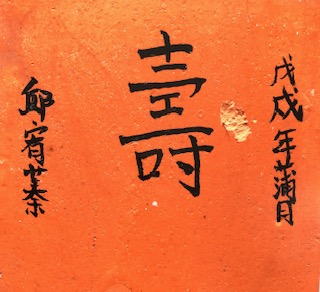 戊戌年蒲月
壽
邱宥蓁